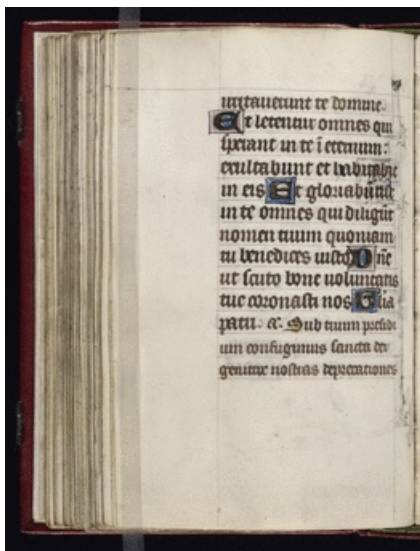 irritauerunt te domine.
Et letentur omnes qui
sperant in te i eternum:
exultabunt et habitabis
in eis Et gloriabūtur
in te omnes qui diligūt
nomen tuum quoniam
tu benedices iusto Dne
ut scuto bone uoluntatis
tue coronasti nos Glia
patri. &c. Sub tuum presidi
um confugimus sancta dei
genitrix nostras deprecationes